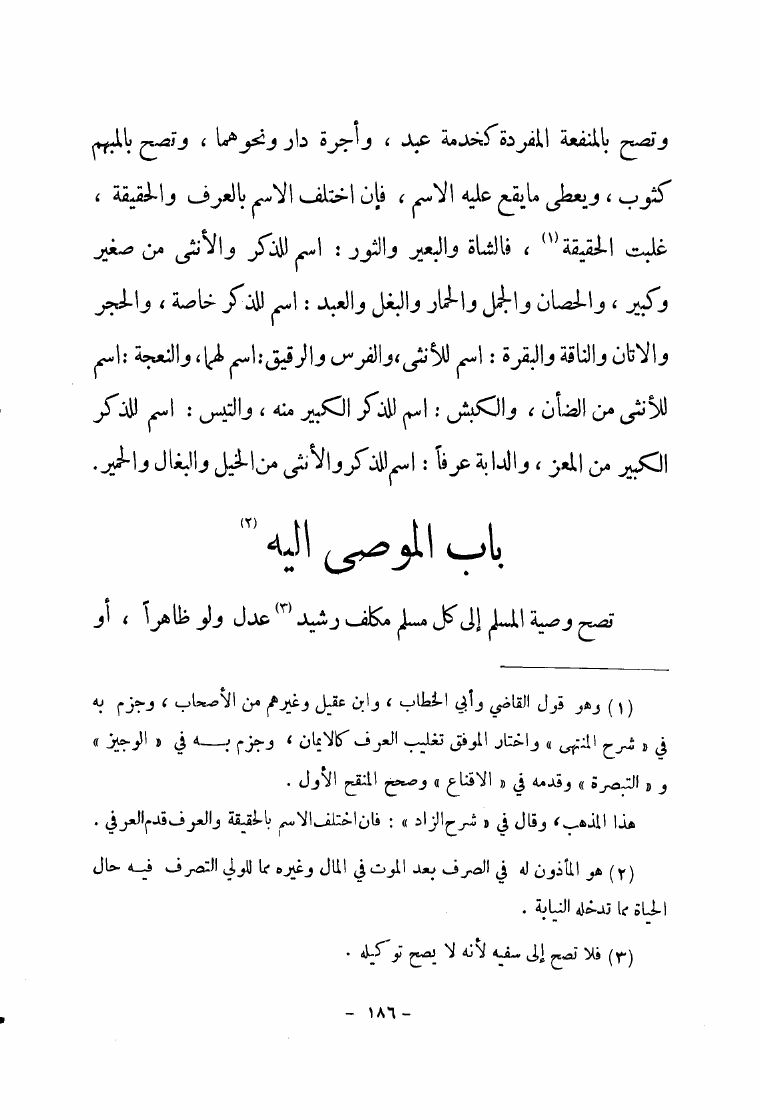 وتصح بالمنفعة المفردة كخدمة عبد ، وأجرة دار ونحوهما ، وتصح بالمبهم
كثوب ، ويعطى مايقع عليه الاسم ، فإن اختلف الاسم بالعرف والحقيقة ،
غلبت الحقيقة (١) ، فالشاة والبعير والثور : اسم للذكر والأنثى من صغير
وكبير ، والحصان والجمل والحمار والبغل والعبد : اسم للذكر خاصة ، والحجر
والاتان والناقة والبقرة : اسم للأنثى،والفرس والرقيق:اسم لهما،والنعجة :اسم
للأنثى من الضأن ، والكبش : اسم للذكر الكبير منه ، والتيس : اسم للذكر
الكبير من المعز ، والدابة عرفاً : اسم للذكر والأنثى من الخيل والبغال والحمير.
باب الموصى اليه (٢)
تصح وصية المسلم إلى كل مسلم مكلف رشيد (٣) عدل ولو ظاهراً ، أو
(١) وهو قول القاضي وأبي الخطاب ، وابن عقيل وغيرهم من الأصحاب ، وجزم به
في « شرح المنتهى » واختار الموفق تغليب العرف كالايمان ، وجزم بـــه في « الوجيز »
و « التبصرة » وقدمه في « الاقناع » وصحح المنقح الأول .
هذا المذهب، وقال في « شرح الزاد » : فان اختلف الاسم بالحقيقة والعرف قدم العرفي .
(٢) هو المأذون له في الصرف بعد الموت في المال وغيره مما للولي التصرف فيـه حال
الحياة مما تدخله النيابة .
(٣) فلا تصح إلى سفيه لأنه لا يصح توكيله .
– ١٨٦ –